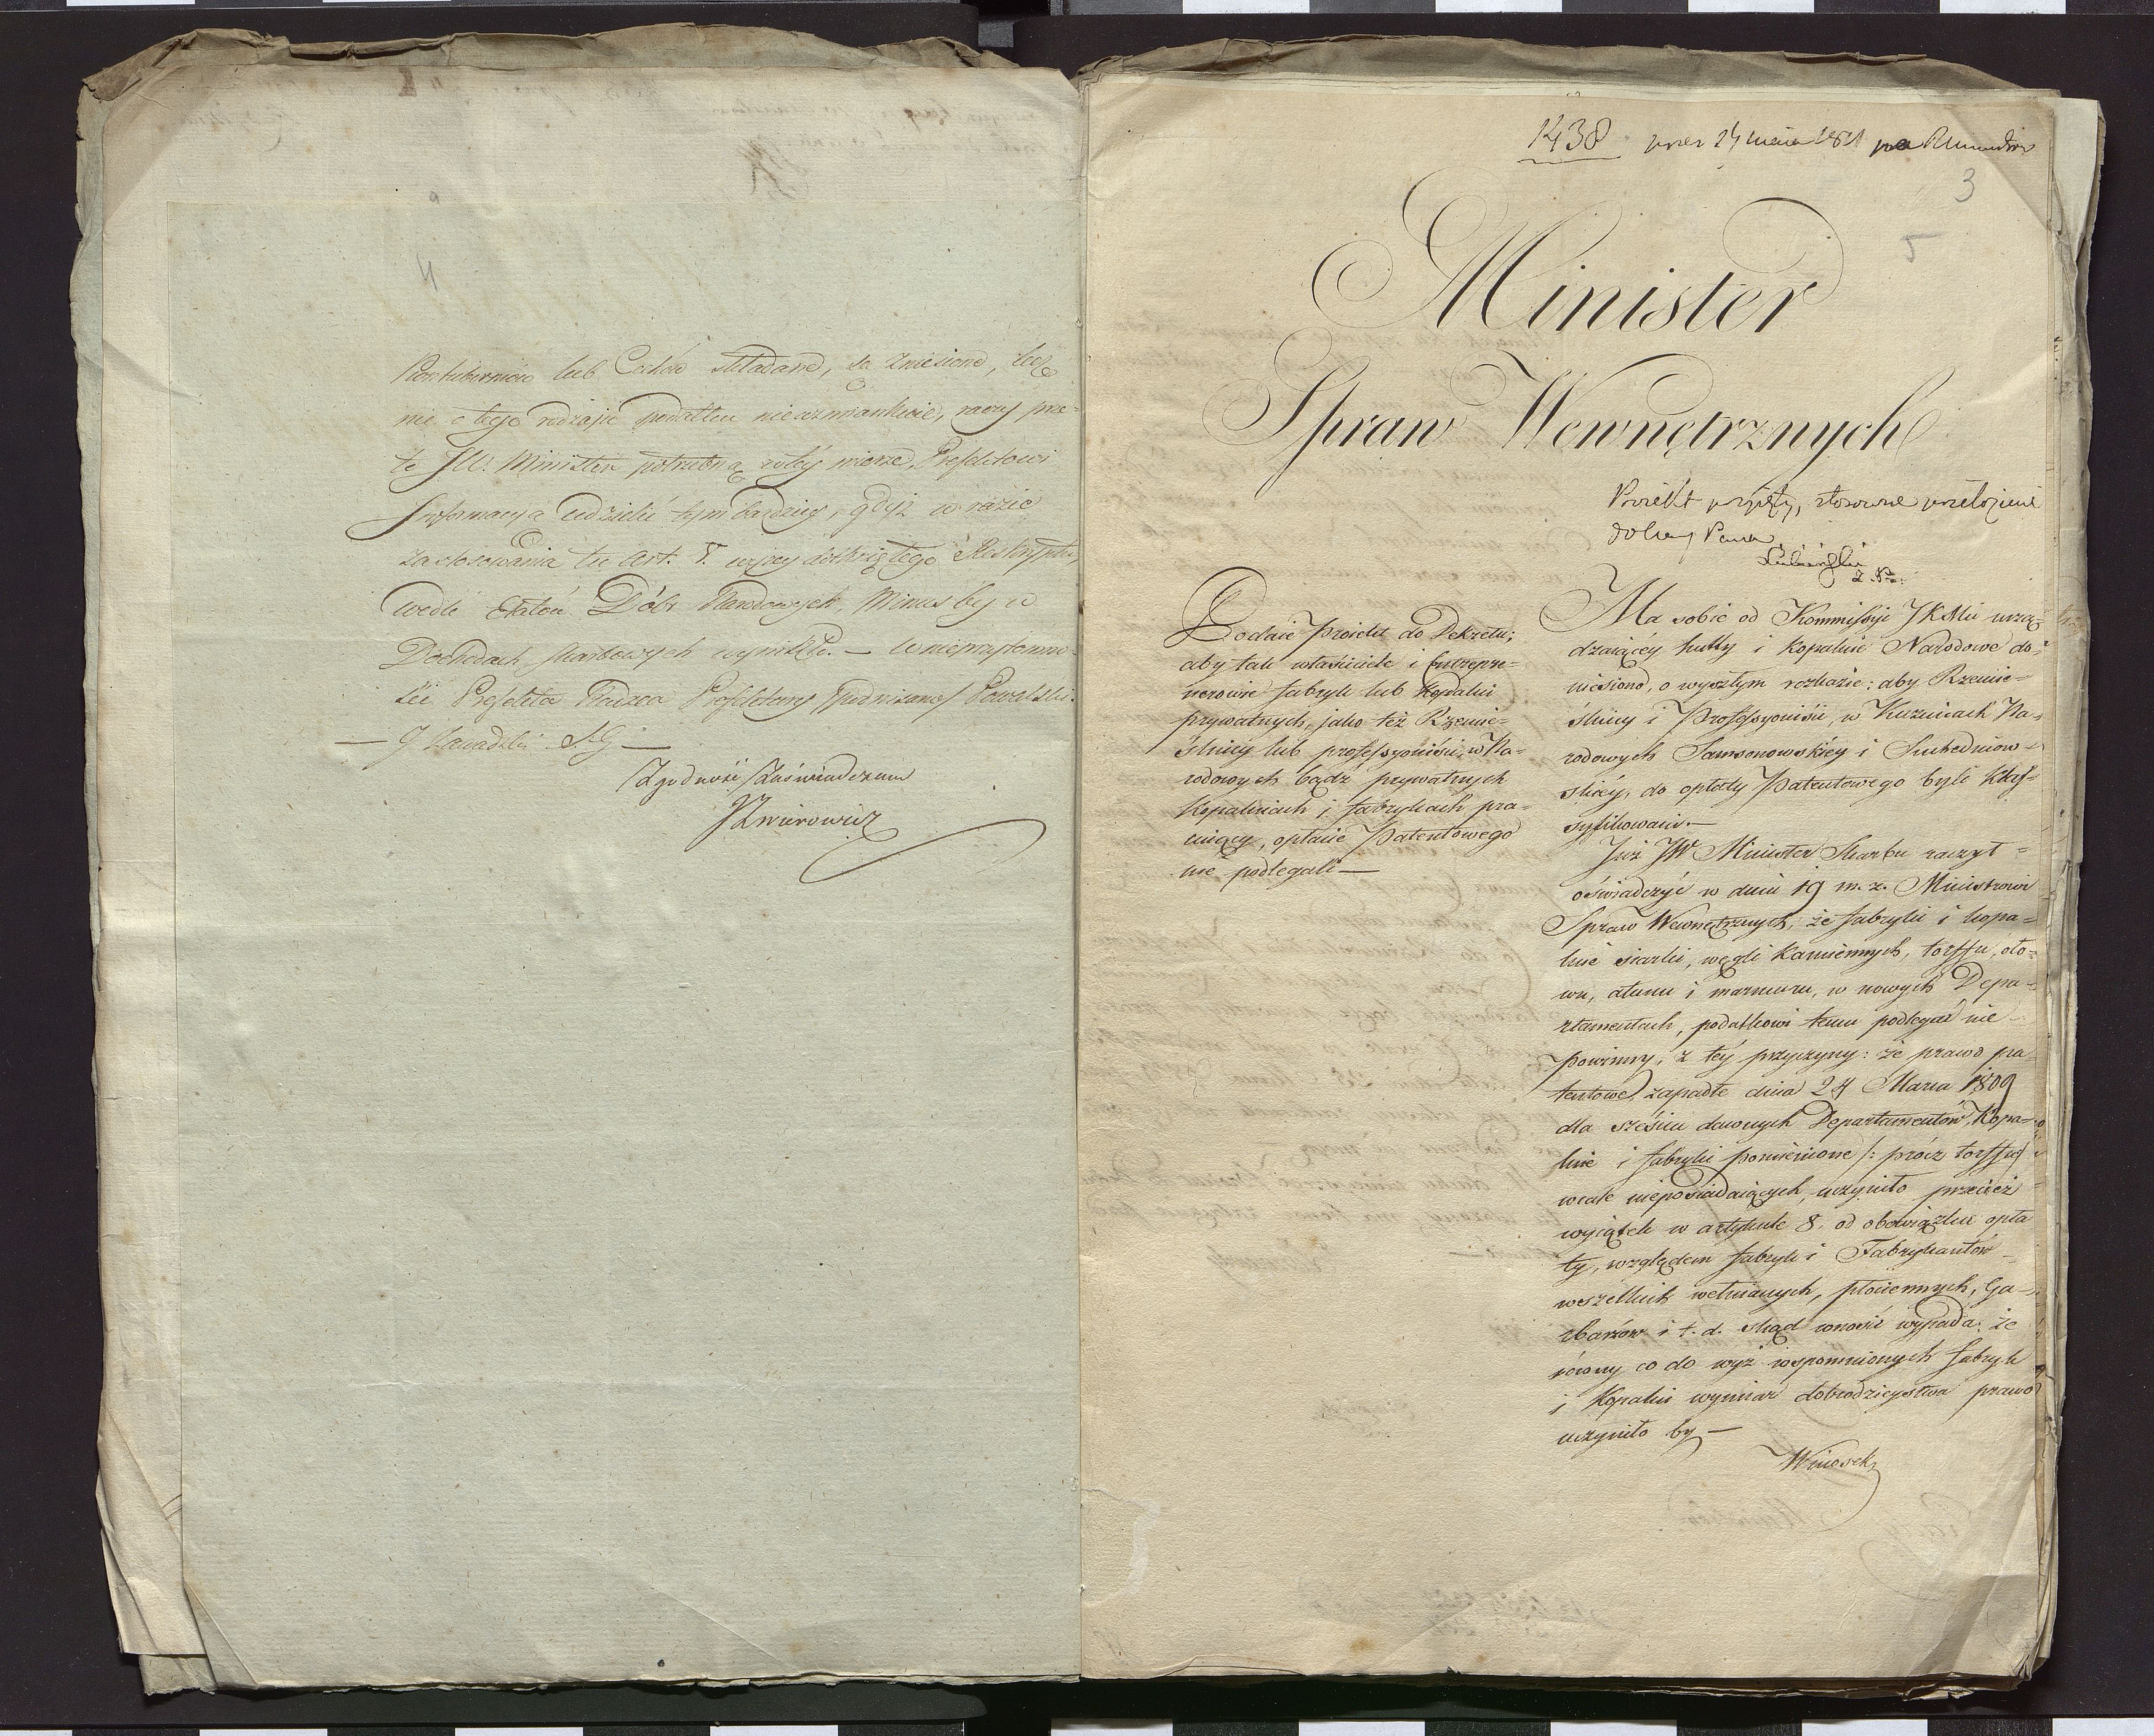 4
lub Cechów składane, są zniesione, lecz
nic o tego rodzaju podatku niewzmiankuie, raczy prze-
to JW. Minister potrzebną w tey mierze Prefektowi
Informacyą udzielić tym bardziey, gdyż w razie
zastosowania tu Art. 5. wyżey dotkniętego Reskryptu,
wedle Etatów Dóbr Narodowych, Minus by w
Dochodach skarbowych wynikło. — W nieprzytomno-
ści Prefekta Radzca Prefektury /podpisano/ Kowalski.
— J Zawadzki S.G —
Zgodność Zaświadczam
JZwierowicz
1438
3
5
Minister
Spraw Wewnętrznych
Proiekt przyięty, stosowne przełożenie
do Rady Pana
Łubieński
Podaie Proiekt do Dekretu;
aby tak właściciele i Entrepre-
nerowie fabryk lub Kopalni
prywatnych, jako też Rzemie-
ślnicy lub professyoniści, w Na-
rodowych bądź prywatnych
Kopalniach i fabrykach pra-
cuiący, opłacie Patentowego
nie podlegali —
Ma sobie od Kommissyi JKMci urzą-
dzaiącey hutty i kopalnie Narodowe do-
niesiono, o wyszłym rozkazie: aby Rzemie-
ślnicy i Professyoniści, w Kuźnicach Na-
rodowych Samsonowskiey i Suchedniow-
skiey, do opłaty Patentowego byli klas-
syfikowani. —
Już JW Minister Skarbu raczył
oświadczyć w dniu 19 m. z. Ministrowi
Spraw Wewnętrznych, że fabryki i kopa-
lnie siarki, węgli kamiennych, torffu, oło-
wu, ałunu i marmuru, w nowych Depa-
rtamentach, podatkowi temu podlegać nie
powinny, z tey przyczyny: że prawo pa-
tentowe, zapadłe dnia 24 Marca 1809
dla sześciu dawnych Departamentów, Kopa-
lnie i fabryki pomienione /: prócz torffu/
wcale nieposiadaiących, uczyniło przecież
wyiątek w artykule 8. od obowiązku opła
ty, względem fabryk i Fabrykantów
wszelkich wełnianych, płóciennych, Ga-
rbarzów i t. d. skąd wnosić wypada, że
równy co do wyż wspomnionych fabryk
i Kopalni wymiar dobrodzieystwa prawo
uczyniło by —
Wniosek